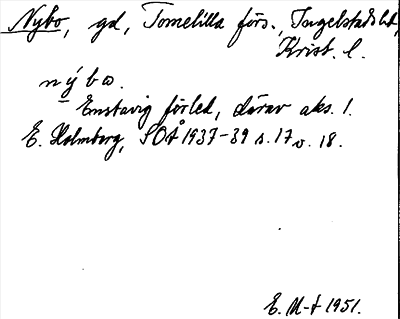 Nybo, gd, Tomelilla förs., Ingelstads hd,
Krist. l.
nýbo.
Enstavig förled, därav aks. 1.
E. Holmberg, SOÅ 1937-39 s. 17 o. 18.
E. M-t 1951.